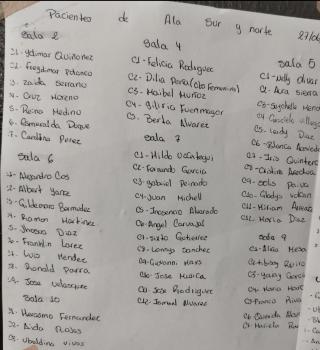 Pacientes de Ala Sur y norte 27/06
Sala 2
C1- Ydimar Quiñonez
C2- Fregdimar Polanco
3- Zaida Serrano
4- Cruz Moreno
5- Reina Medina
6- Esmeralda Duque
7- Carolina Perez
Sala 6
1- Alejandro Cos
2- Albert Yanez
3- Gildegaro Bermudez
4- Ramon Martinez
5- Jhosua Diaz
6- Franklin Lopez
7- Luis Mendez
8- Ronald Parra
9- Jose Velasquez
Sala 10
1- Herasimo Fernandez
02- Aida Rojas
03- Ubaldina Vivas
Sala 4
C1- Felicia Rodriguez
C2- Dilia Peña (clo Femenino)
C3- Maibel Muñoz
C4- Gliria Fuenmayor
C5- Berta Alvarez
Sala 7
C1- Hilda Uzcategui
C2- Fernando Garcia
C3- Gabriel Peinado
C4- Juan Michell
C5- Inosencio Alvarado
C6- Angel Carvajal
C7- Sixto Gutierrez
C8- Lorenzo Sanchez
C9- Giovanni Mars
C10- Jose
C11- Jose Rodriguez
C12- Ismael Alvarez
Sala 5
C1- Nelly Olivar
C2- Aura Sierra
C3- Suychelle
C4- Graciela
C5- Leidy Diaz
C6- Blanca Acevedo
C7- Iris Quintero
C8- Cristina
C9- Solis Paiva
C10- Gladys
C11- Miriam
C12- Maria Diaz
Sala 9
C1- Alba Mesa
C3- Yeany Garcia
C4- Maria
C5- Franco Riva
C6- Candida
C7- Mariela